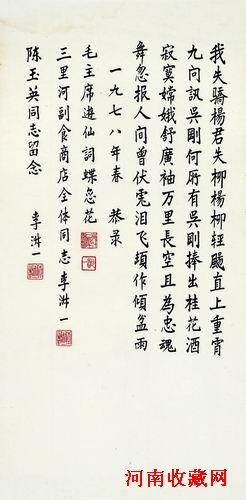 我失驕楊君失柳楊柳輕颺直上重霄
九问訊吳剛何所有吳剛捧出桂花酒
寂寞嫦娥舒廣袖万里長空且為忠魂
舞忽报人间曾伏虎泪飞頓作傾盆雨
一九七八年春 恭录
毛主席遊仙詞蝶恋花
三里河副食商店全体同志 李淑一
陈玉英同志留念
李淑一
河南收藏网